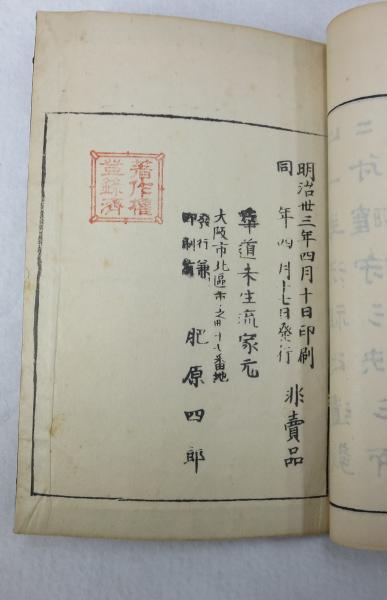 明治廿三年四月十日印刷
同 年四月十七日發行
非賣品
華道未生流家元
大阪市北區
番地
發行兼
印刷者
肥原四郎
著作權
登録濟